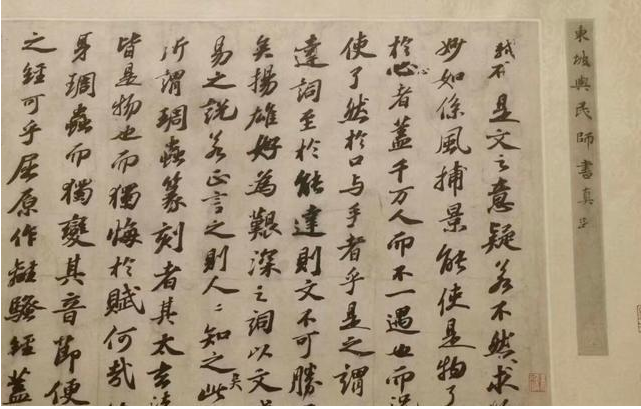 東坡與民師書真
是文之意疑若不然求
妙如係風捕景能使是物了
於心者蓋千万人而不一遇也而況
使了然於口与手者乎是之謂
達詞至於能達則文不可勝
矣揚雄好為艱深之詞以文
易之說若正言之則人〻知之矣此
所謂琱蟲篆刻者其太玄法
皆是物也而獨悔於賦何哉
身琱蟲而獨變其音節便
之經可乎屈原作離騷經蓋